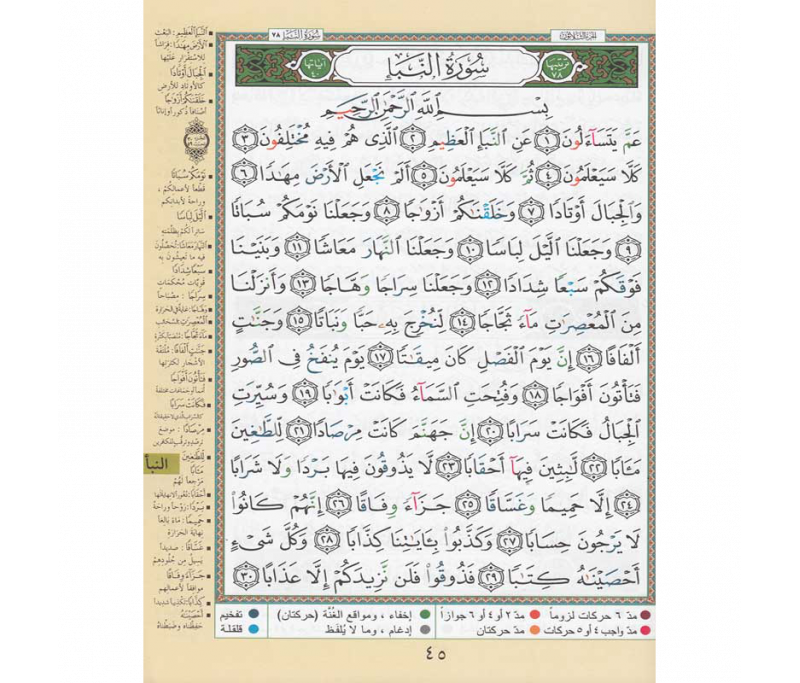 الجُزءُ الثَّلَاثُونَ
سُورَةُ النَّبَإِ ٧٨
ترتيبها ٧٨
سُورَةُ النَّبَإِ
آياتها ٤٠
بِسْمِ ٱللَّهِ ٱلرَّحْمَٰنِ ٱلرَّحِيمِ
عَمَّ يَتَسَآءَلُونَ ١ عَنِ ٱلنَّبَإِ ٱلْعَظِيمِ ٢ ٱلَّذِى هُمْ فِيهِ مُخْتَلِفُونَ ٣
كَلَّا سَيَعْلَمُونَ ٤ ثُمَّ كَلَّا سَيَعْلَمُونَ ٥ أَلَمْ نَجْعَلِ ٱلْأَرْضَ مِهَٰدًا ٦
وَٱلْجِبَالَ أَوْتَادًا ٧ وَخَلَقْنَٰكُمْ أَزْوَٰجًا ٨ وَجَعَلْنَا نَوْمَكُمْ سُبَاتًا
٩ وَجَعَلْنَا ٱلَّيْلَ لِبَاسًا ١٠ وَجَعَلْنَا ٱلنَّهَارَ مَعَاشًا ١١ وَبَنَيْنَا
فَوْقَكُمْ سَبْعًا شِدَادًا ١٢ وَجَعَلْنَا سِرَاجًا وَهَّاجًا ١٣ وَأَنزَلْنَا
مِنَ ٱلْمُعْصِرَٰتِ مَآءً ثَجَّاجًا ١٤ لِّنُخْرِجَ بِهِۦ حَبًّا وَنَبَاتًا ١٥ وَجَنَّٰتٍ
أَلْفَافًا ١٦ إِنَّ يَوْمَ ٱلْفَصْلِ كَانَ مِيقَٰتًا ١٧ يَوْمَ يُنفَخُ فِى ٱلصُّورِ
فَتَأْتُونَ أَفْوَاجًا ١٨ وَفُتِحَتِ ٱلسَّمَآءُ فَكَانَتْ أَبْوَٰبًا ١٩ وَسُيِّرَتِ
ٱلْجِبَالُ فَكَانَتْ سَرَابًا ٢٠ إِنَّ جَهَنَّمَ كَانَتْ مِرْصَادًا ٢١ لِّلطَّٰغِينَ
مَـَٔابًا ٢٢ لَّٰبِثِينَ فِيهَآ أَحْقَابًا ٢٣ لَّا يَذُوقُونَ فِيهَا بَرْدًا وَلَا شَرَابًا
٢٤ إِلَّا حَمِيمًا وَغَسَّاقًا ٢٥ جَزَآءً وِفَاقًا ٢٦ إِنَّهُمْ كَانُوا۟
لَا يَرْجُونَ حِسَابًا ٢٧ وَكَذَّبُوا۟ بِـَٔايَٰتِنَا كِذَّابًا ٢٨ وَكُلَّ شَىْءٍ
أَحْصَيْنَٰهُ كِتَٰبًا ٢٩ فَذُوقُوا۟ فَلَن نَّزِيدَكُمْ إِلَّا عَذَابًا ٣٠
النَّبَإِ العَظِيمِ: البَعْث
الأَرْضَ مِهَٰدًا: فراشاً
للاستقرار عليها
الجِبَالَ أَوْتَادًا
كالأوتاد للأرض
خَلَقْنَٰكُمْ أَزْوَٰجًا
أصنافاً ذكوراً وإناثاً
نَوْمَكُمْ سُبَاتًا
قطعاً لأعمالكم،
وراحة لأبدانكم
الَّيْلَ لِبَاسًا
ساتراً لكم بظلمته
النَّهَارَ مَعَاشًا: تُحَصِّلون
فيه ما تعيشون به
سَبْعًا شِدَادًا
قويّات محكمات
سِرَاجًا: مصباحاً
مَآءً ثَجَّاجًا: منصبّاً بكثرة
جَنَّٰتٍ أَلْفَافًا: ملتفّة
الأشجار لكثرتها
فَتَأْتُونَ أَفْوَاجًا
فَكَانَتْ سَرَابًا
مِرْصَادًا: موضع
لِّلطَّٰغِينَ
النبأ
مَـَٔابًا
مرجعاً لهم
بَرْدًا: رَوْحاً وراحة
حَمِيمًا: ماءً بالغاً
نهاية الحرارة
غَسَّاقًا: صديداً
يسيل من جلودهم
جَزَآءً وِفَاقًا
موافقاً لأعمالهم
كِذَّابًا: تكذيباً شديداً
أَحْصَيْنَٰهُ
حفظناه وضبطناه
مدّ ٦ حركات لزوماً مدّ ٢ أو ٤ أو ٦ جوازاً إخفاء ، ومواقع الغُنَّة (حركتان) تفخيم
مدّ واجب ٤ أو ٥ حركات مدّ حركتان إدغام ، وما لا يُلفَظ قلقلة
٤٥